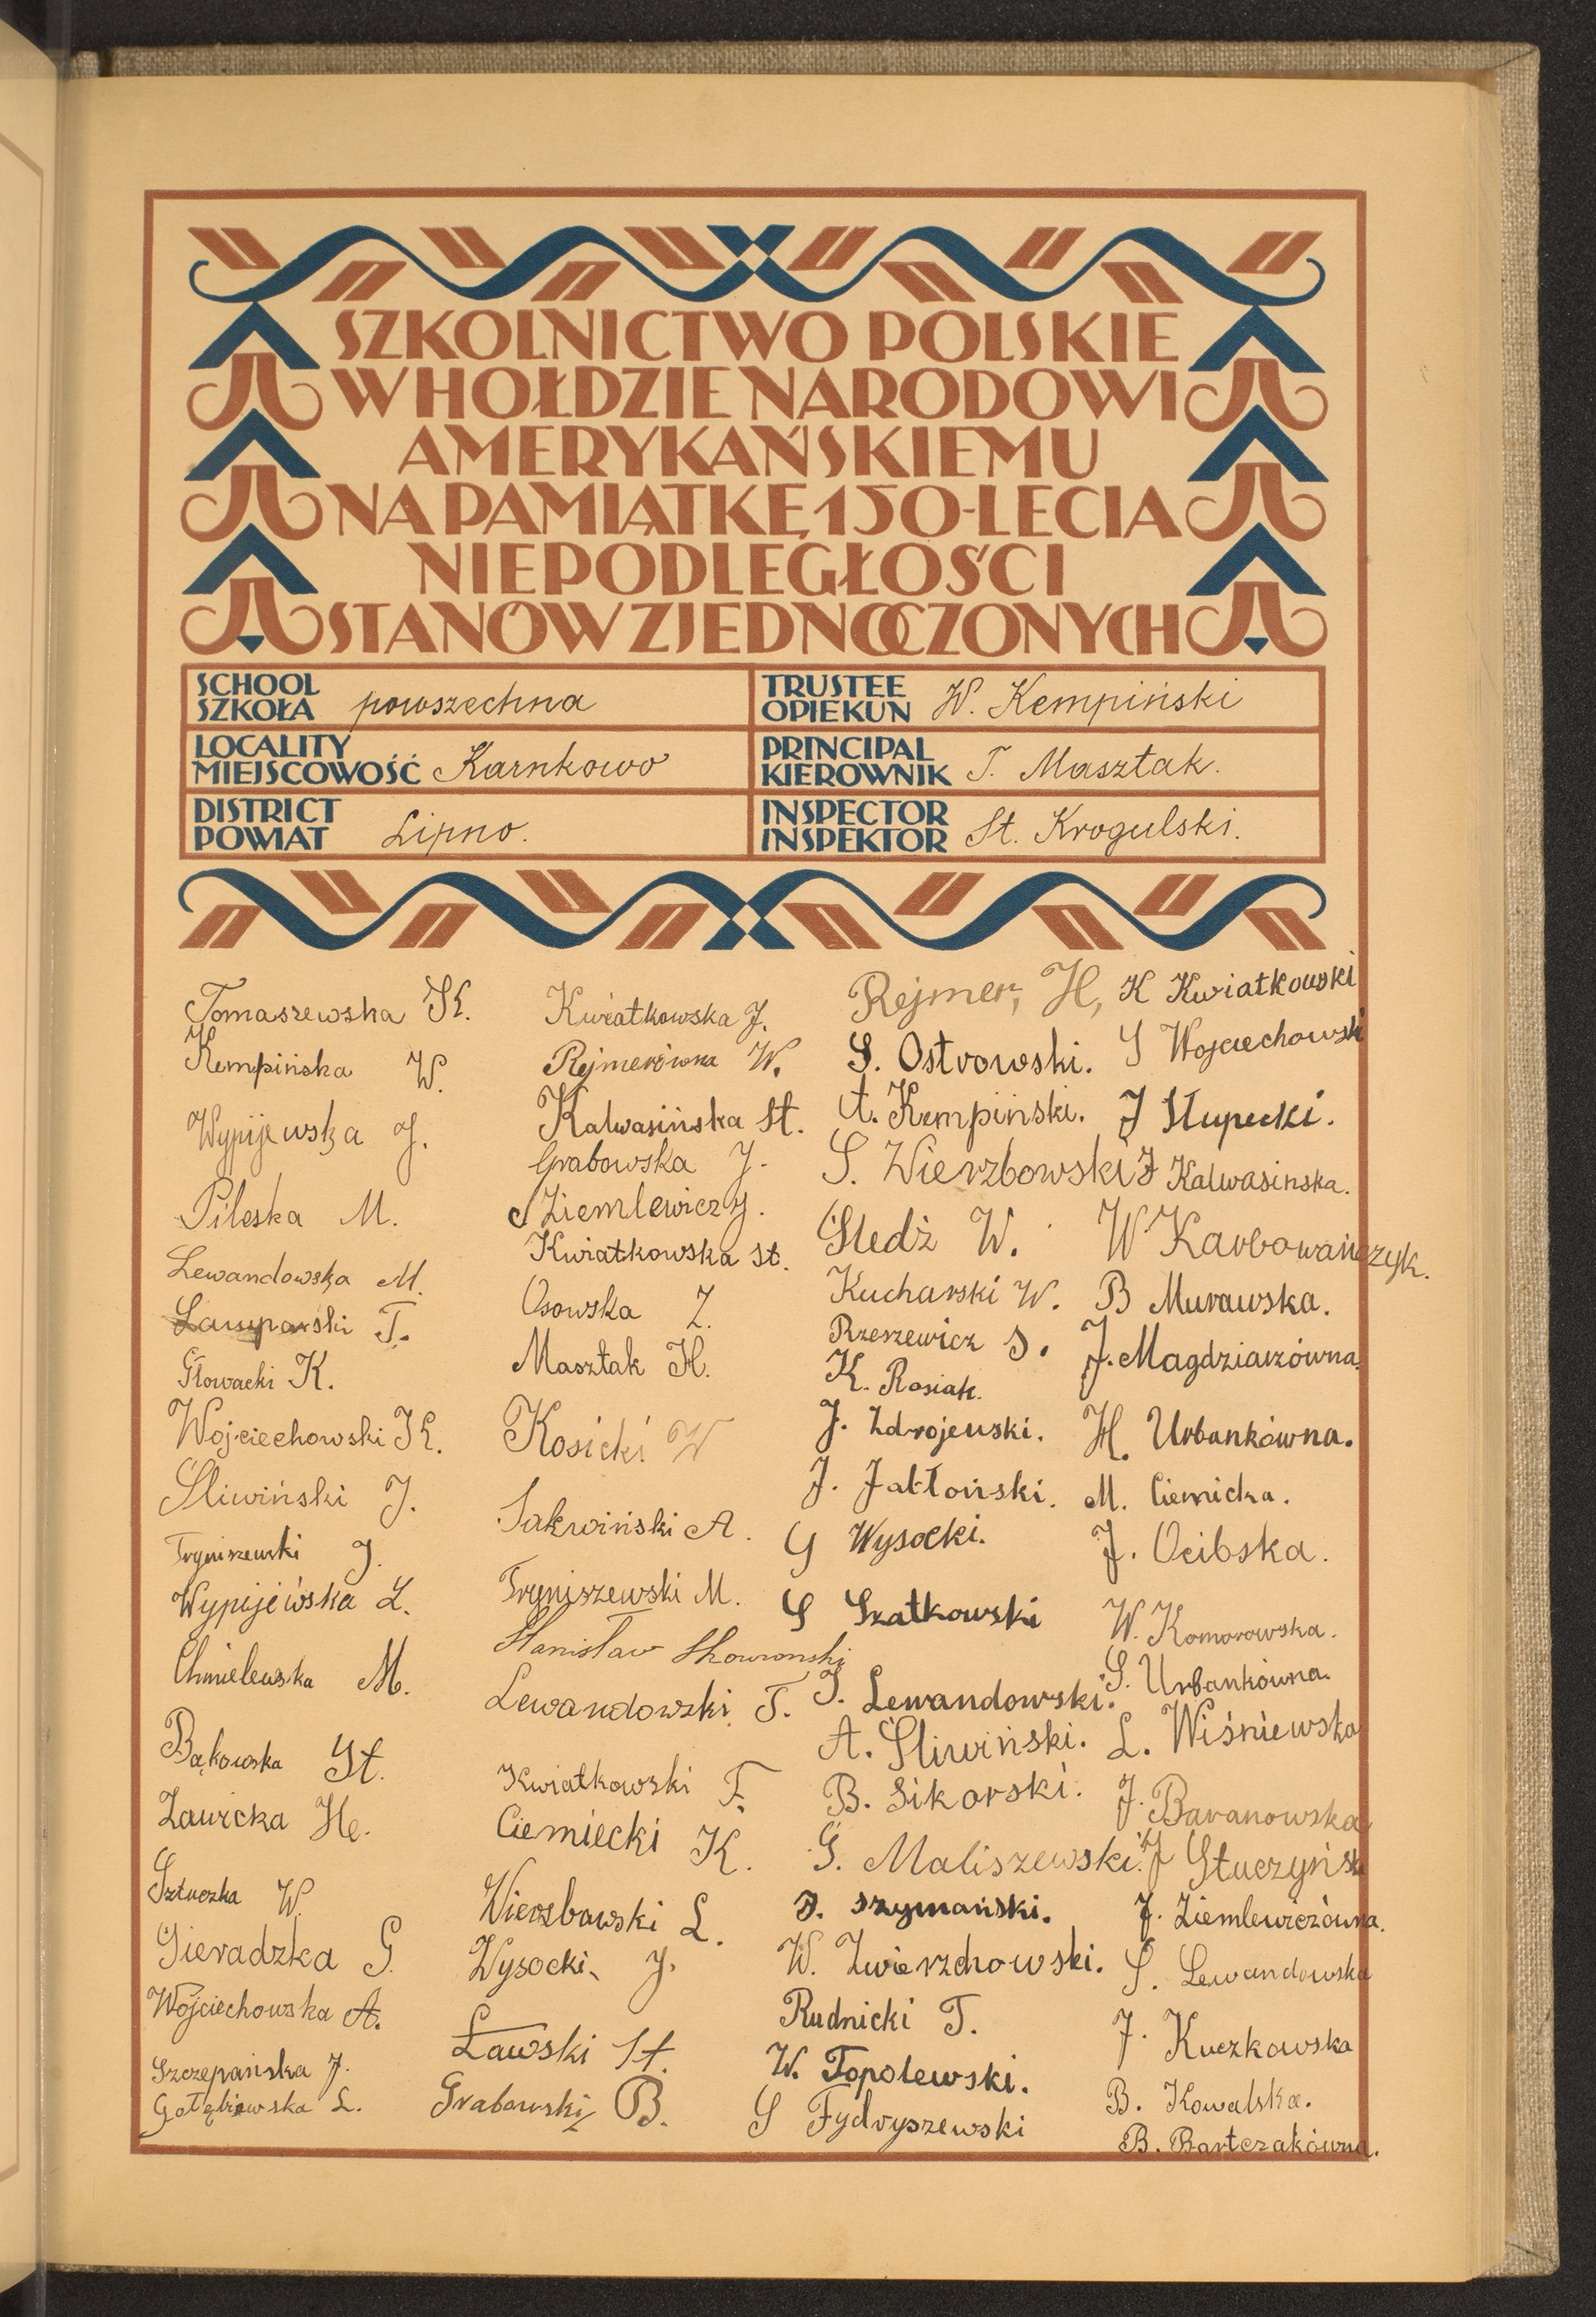 SZKOLNICTWO POLSKIE
W HOŁDZIE NARODOWI
AMERYKAŃSKIEMU
NA PAMIĄTKĘ 150-LECIA
NIEPODLEGŁOŚCI
STANÓW ZJEDNOCZONYCH
SCHOOL
SZKOŁA powszechna
TRUSTEE
OPIEKUN W. Kempiński
LOCALITY
MIEJSCOWOŚĆ Karnkowo
PRINCIPAL
KIEROWNIK T. Masztak.
DISTRICT
POWIAT Lipno.
INSPECTOR
INSPEKTOR St. Krogulski.
Tomaszewska K.
Kempińska W.
Wypijewska J.
Pileska M.
Lewandowska M.
T.
Głowacki K.
Wojciechowski K.
Śliwiński J.
Tryniszewski J.
Wypijewska L.
Chmielewska M.
Bąkowska St.
Zawicka He.
Sztuczka W.
Sieradzka G.
Wojciechowska A.
Szczepańska J.
Gołębiewska L.
Kwiatkowska J.
Rejmerówna W.
Kalwasińska St.
Grabowska J.
Ziemlewicz J.
Kwiatkowska St.
Osowska Z.
Masztak H.
Kosicki W
Sakwiński A.
Tryniszewski M.
Stanisław Skowronski
Lewandowski T.
Kwiatkowski F.
Ciemiecki K.
Wierzbowski L.
Wysocki J.
Ławski St.
Grabowski B.
Rejmer, H,
S. Ostrowski.
A. Kempiński.
S. Wierzbowski
Śledź W.
Kucharski W.
Rzeszewicz S.
K. Rosiak.
J. Zdrojewski.
J. Jabłoński.
G Wysocki.
S Szatkowski
T. Lewandowski.
A. Śliwiński.
B. Sikorski.
G. Maliszewski.
J. Szymański.
W. Zwierzchowski.
Rudnicki T.
W. Topolewski.
S Fydryszewski
K Kwiatkowski
S Wojciechowski
J Słupecki.
J Kalwasinska.
W Karbowańczyk.
B Murawska.
J. Magdziarzówna.
H. Urbankówna.
M. Ciemicka.
J. Ocibska.
W. Komorowska.
S. Urbankówna.
L. Wiśniewska
J. Baranowska
J Stuczyńsk
J. Ziemlewiczówna.
S. Lewandowska
J. Kuczkowska
B. Kowalska.
B. Bartczakówna.